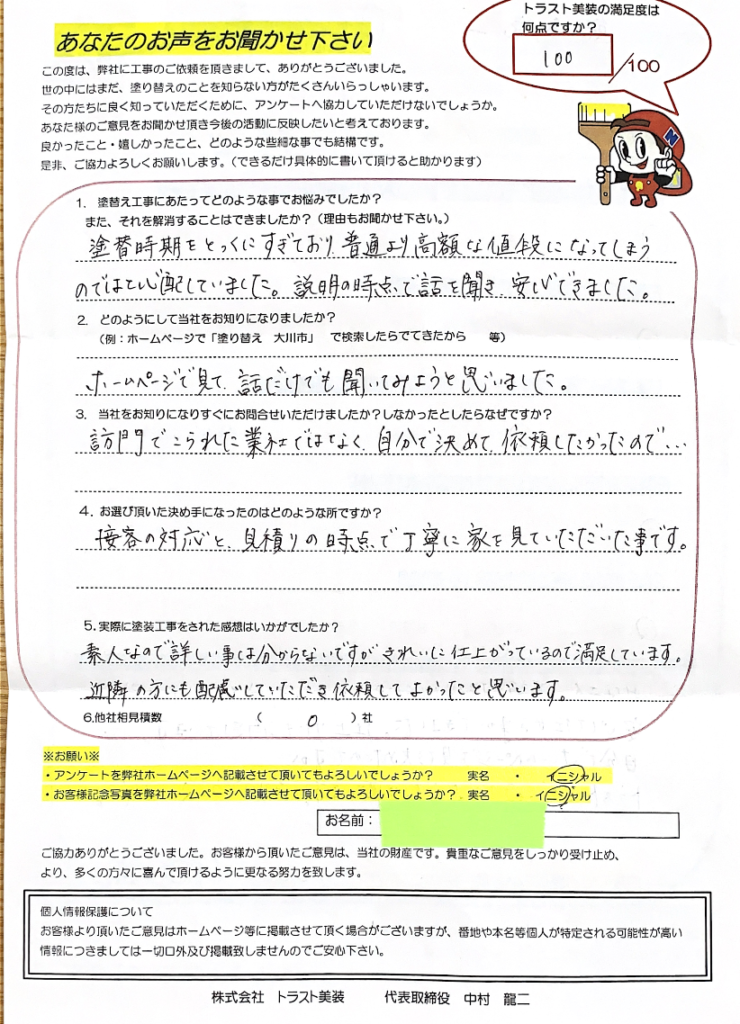 あなたのお声をお聞かせ下さい
トラスト美装の満足度は
何点ですか?
100
/100
この度は、弊社に工事のご依頼を頂きまして、ありがとうございました。
世の中にはまだ、塗り替えのことを知らない方がたくさんいらっしゃいます。
その方たちに良く知っていただくために、アンケートへ協力していただけないでしょうか。
あなた様のご意見をお聞かせ頂き今後の活動に反映したいと考えております。
良かったこと・嬉しかったこと、どのような些細な事でも結構です。
是非、ご協力よろしくお願いします。(できるだけ具体的に書いて頂けると助かります)
N
1. 塗替え工事にあたってどのような事でお悩みでしたか?
また、それを解消することはできましたか?(理由もお聞かせ下さい。)
塗替時期をとっくにすぎており、普通より高額な値段になってしまう
のではと心配していました。説明の時点で話を聞き、安心できました。
2. どのようにして当社をお知りになりましたか?
(例:ホームページで「塗り替え 大川市」 で検索したらでてきたから 等)
ホームページで見て、話だけでも聞いてみようと思いました。
3. 当社をお知りになりすぐにお問合せいただけましたか?しなかったとしたらなぜですか?
訪問でこられた業社ではなく、自分で決めて、依頼したかったので…
4. お選び頂いた決め手になったのはどのような所ですか?
接客の対応と、見積りの時点で丁寧に家を見ていただいた事です。
5.実際に塗装工事をされた感想はいかがでしたか?
素人なので詳しい事は分からないですがきれいに仕上がっているので満足しています。
近隣の方にも配慮していただき依頼してよかったと思います。
6.他社相見積数 ( 0 )社
※お願い※
・アンケートを弊社ホームページへ記載させて頂いてもよろしいでしょうか? 実名 ・ イニシャル
・お客様記念写真を弊社ホームページへ記載させて頂いてもよろしいでしょうか? 実名 ・ イニシャル
お名前:
ご協力ありがとうございました。お客様から頂いたご意見は、当社の財産です。貴重なご意見をしっかり受け止め、
より、多くの方々に喜んで頂けるように更なる努力を致します。
個人情報保護について
お客様より頂いたご意見はホームページ等に掲載させて頂く場合がございますが、番地や本名等個人が特定される可能性が高い
情報につきましては一切口外及び掲載致しませんのでご安心下さい。
株式会社 トラスト美装 代表取締役 中村 龍二